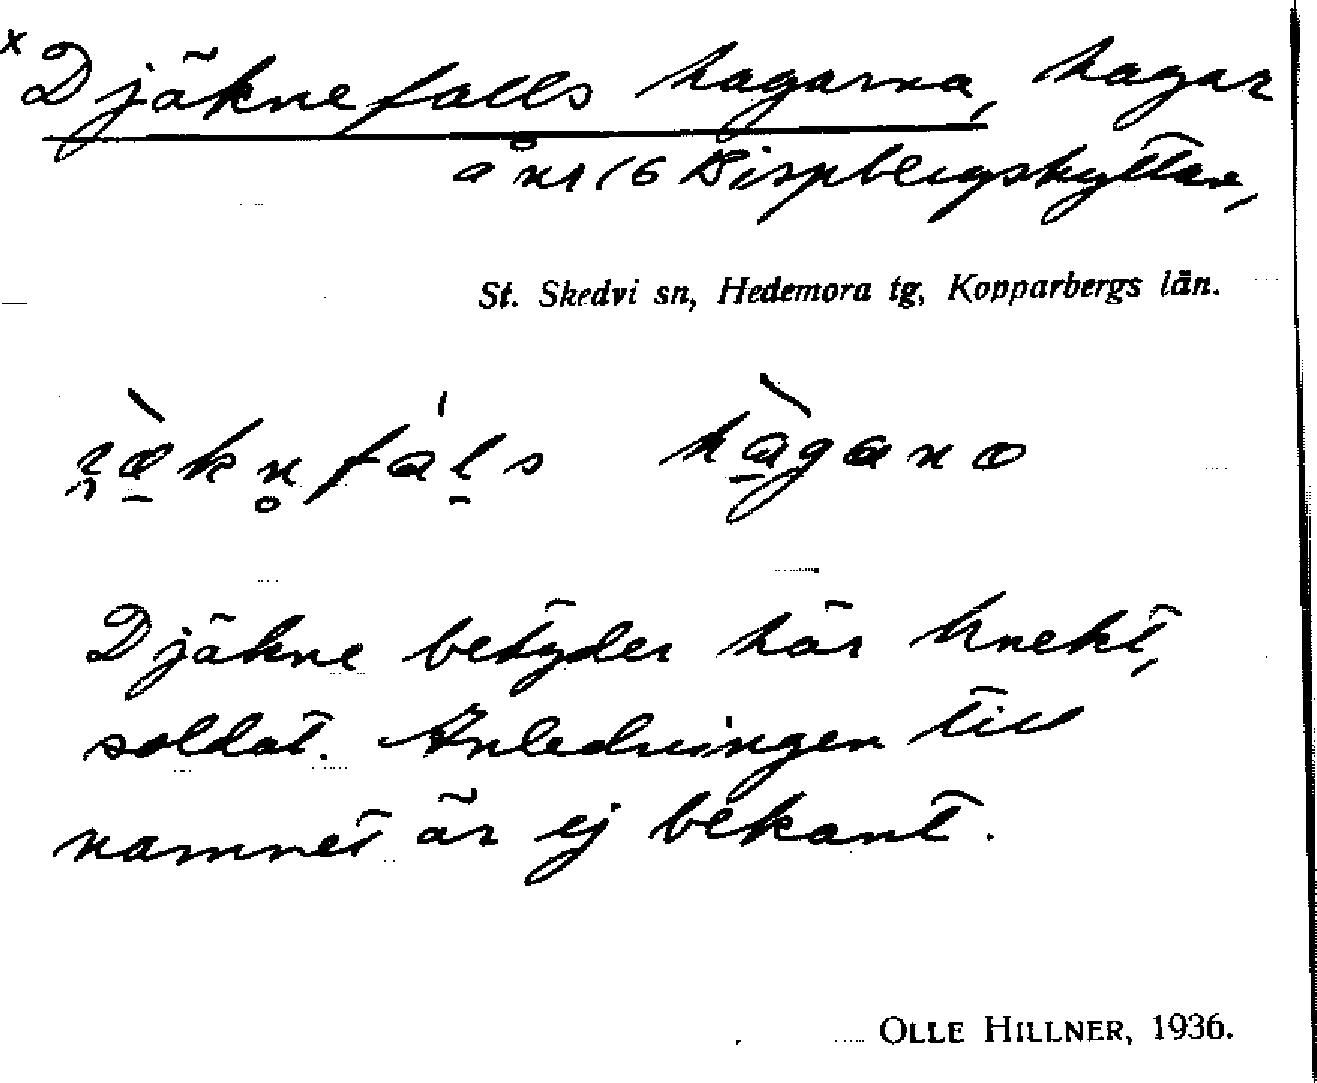 x Djäknefalls hagarna, hagar
å nr 16 Bispbergshyttan,
St. Skedvi sn, Hedemora tg, Kopparbergs län.
Djäkne betyder här knekt,
soldat. Anledningen till
namnet är ej bekant.
OLLE HILLNER, 1936.